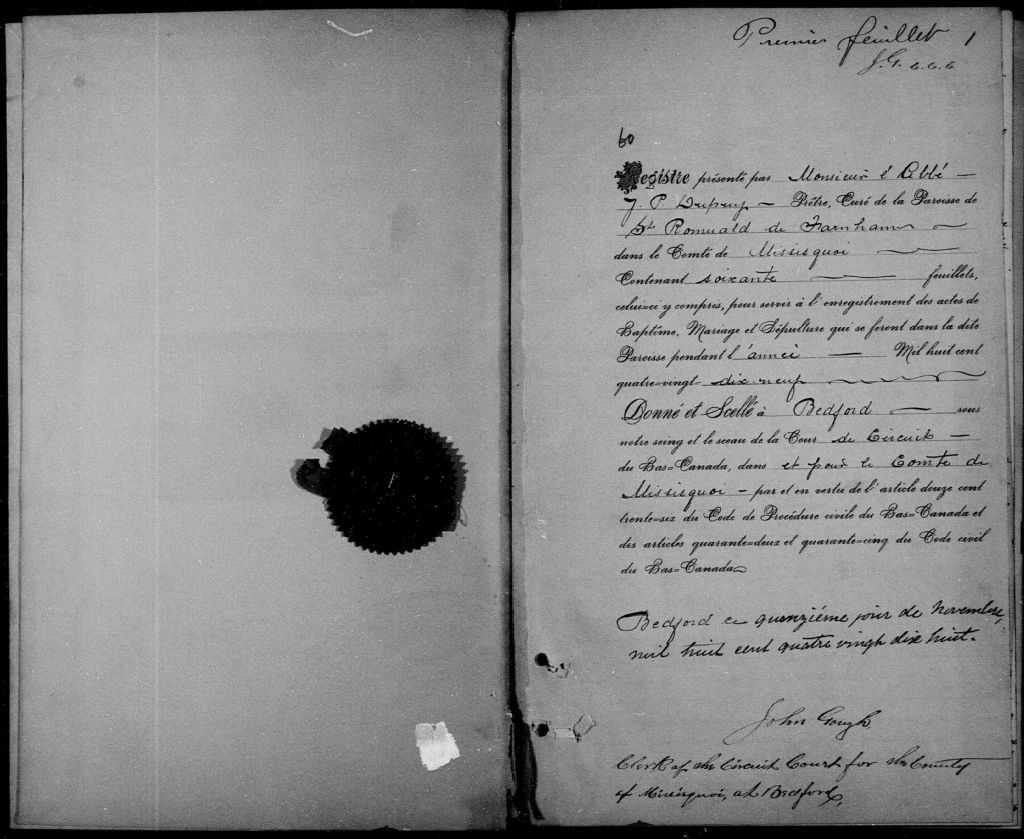 Premier feuillet 1
J.G. c.c.c
60
Registre présenté par Monsieur l'Abbé —
J. P. Dupuy — Prêtre, Curé de la Paroisse de
St Romuald de Farnham —
dans le Comté de Missisquoi —
Contenant soixante — feuillets,
celui=ci y compris, pour servir à l'enregistrement des actes de
Baptême, Mariage et Sépulture qui se feront dans la dite
Paroisse pendant l'année — Mil huit cent
quatre=vingt= dix neuf —
Donné et Scellé à Bedford — sous
notre seing et le sceau de la Cour de Circuit —
du Bas=Canada, dans et pour le Comté de
Missisquoi — par et en vertu de l'article douze cent
trente=six du Code de Procédure civile du Bas=Canada et
des articles quarante=deux et quarante=cinq du Code civil
du Bas=Canada
Bedford ce quinzième jour de Novembre,
mil huit cent quatre vingt dix huit.
John Gough
Clerk of the Circuit Court for the County
of Missisquoi, at Bedford,